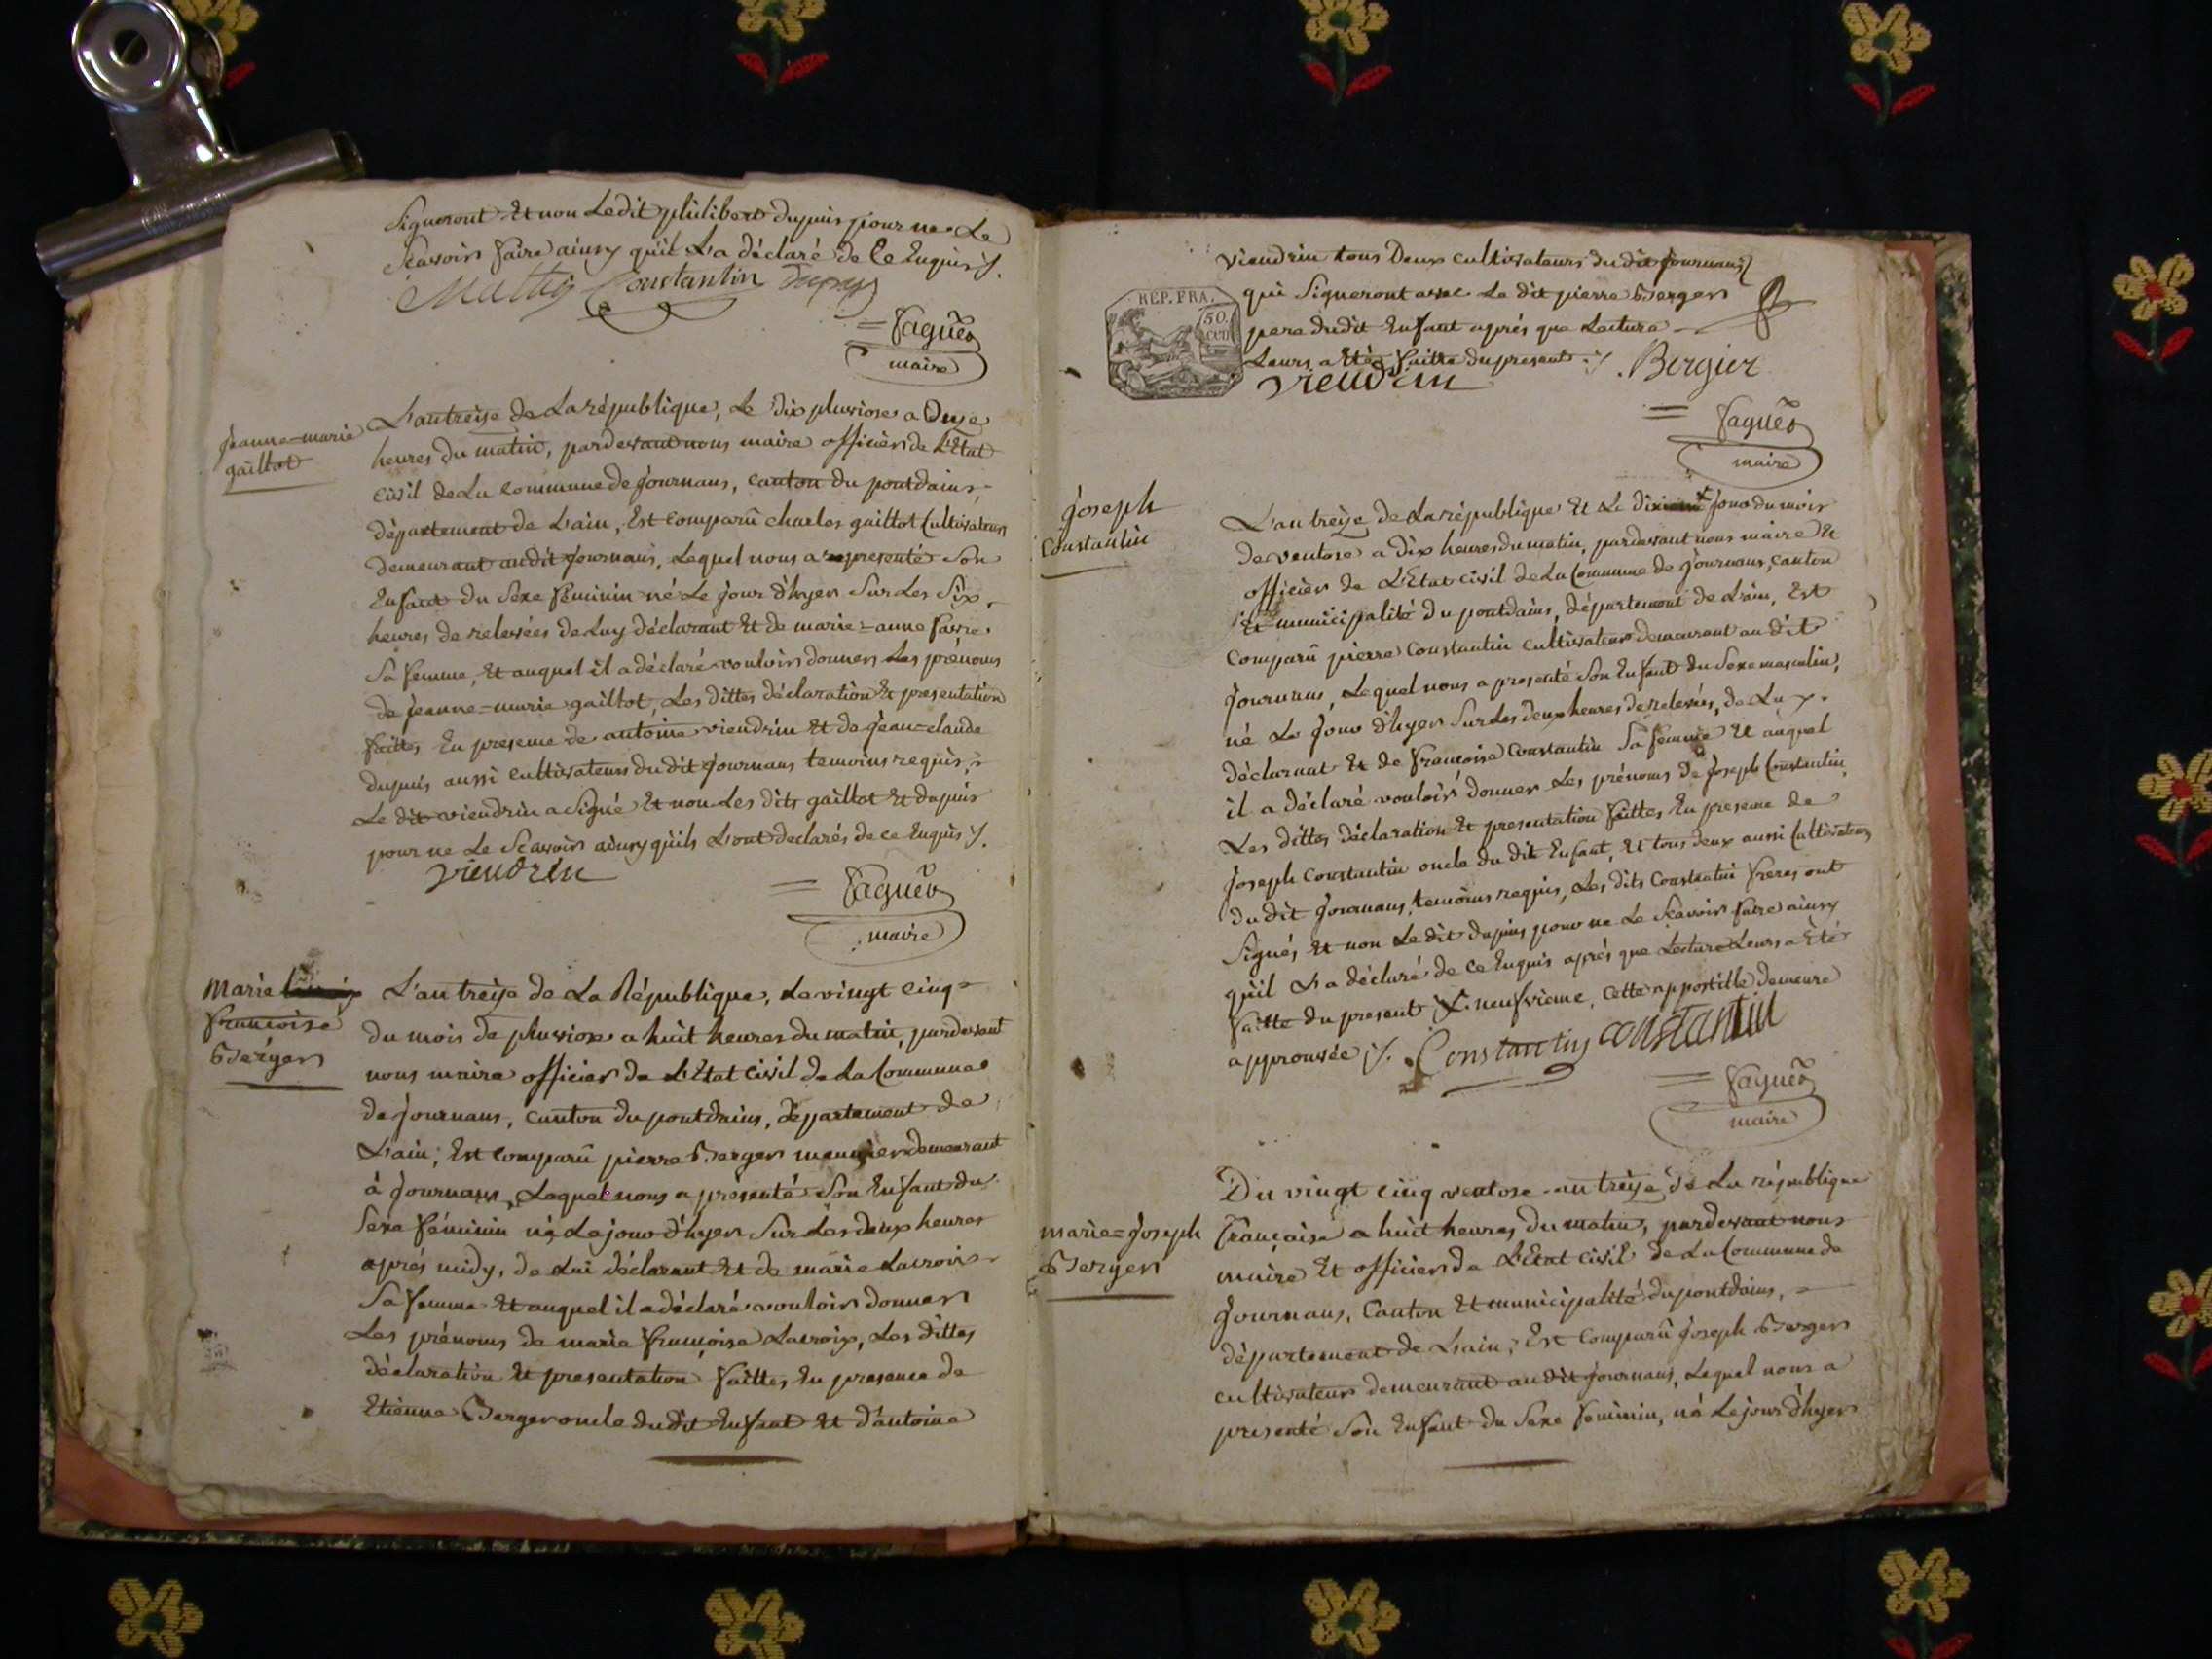 Signeront Et non Ledit philibert dupuis pour ne Le
Scavoir faire ainsy quil L'a déclaré de Ce Enquis ./.
Constantin dupuis
= Faguës
maire
jeanne=marie
gaillot
L'an treise de La république, Le dix pluviose a Onze
heures du matin, pardevant nous maire officier de L'Etat
civil de La Commune de journans, canton du pontdains,
département de L'ain, Est comparû charles gaillot Cultivateur
demeurant audit journans, Lequel nous a representé Son
Enfant du Sexe feminin né Le jour d'hyer Sur Les Six
heures de relevées de Luy déclarant Et de marie=anne favre
Sa femme, Et auquel il a déclaré vouloir donner Les prénoms
de jeanne=marie gaillot, Les dittes déclaration Et presentation
faittes En presence de antoine viendrin Et de jean=claude
dupuis aussi cultivateurs du dit journans temoins requis,
Le dit viendrin a Signé Et non Les dits gaillot Et dupuis
pour ne Le Scavoir ainsy quils L'ont declarés de ce Enquis ./.
viendrin
= Faguës
maire
Marie
francoise
Berger
L'an treise de La République, Le vingt cinq
du mois de pluviose a huit heures du matin, pardevant
nous maire officier de L'Etat Civil de La Commune
de journans, canton du pontdains, département de
L'ain; Est comparû pierre Berger meunier demeurant
à journans, Lequel nous a présenté Son Enfant du
Sexe féminin né Le jour d'hyer Sur Les deux heures
aprés midy, de Lui déclarant Et de marie Lacroix
Sa femme Et auquel il a déclaré vouloir donner
Les prénoms de marie francoise Lacroix, Les dittes
déclaration Et presentation faittes En presence de
Etienne Berger oncle dudit Enfant Et d'antoine
viendrin tous Deux cultivateurs du dit journans
qui Signeront avec Le dit pierre Berger
pere dudit Enfant aprés que Lecture
Leurs a Eté faitte du present ./.
REP. FRA.
50
cen
viendrin
Bergier
= Faguës
maire
joseph
Constantin
L'an treize de La république Et Le dixieme jour du mois
de ventose a dix heures du matin, pardevant nous maire Et
officier de L'Etat civil de La Commune de journans, canton
Et municipalité du pontdains, département de L'ain, Est
Comparû pierre Constantin cultivateur demeurant au dit
journans, Lequel nous a presenté Son Enfant du Sexe masculin,
né Le jour d'hyer Sur Les deux heures de relevées, de Luy
déclarant Et de francoise Constantin Sa femme Et auquel
il a déclaré vouloir donner Les prénoms de joseph Constantin,
Les dittes déclaration Et presentation faittes En presence de
joseph Constantin oncle du dit Enfant, Et tous deux aussi Cultivateurs
du dit journans, temoins requis, Les dits Constantin freres ont
Signés Et non Le dit dupuis pour ne Le Scavoir faire ainsy
quil L'a déclaré de Ce Enquis aprés que Lecture Leurs a Eté
faitte du present X. neufvieme, Cette appostille demeure
approuvée ./. Constantin constantin
= Faguës
maire
marie=joseph
Berger
Du vingt cinq ventose an treize de La république
française a huit heures du matin, pardevant nous
maire Et officier de L'Etat Civil de La Commune de
journans, Canton Et municipalité du pontdains,
département de L'ain; Est Comparû joseph Berger
cultivateur demeurant au dit journans, Lequel nous a
presenté Son Enfant du Sexe feminin, né Le jour d'hyer